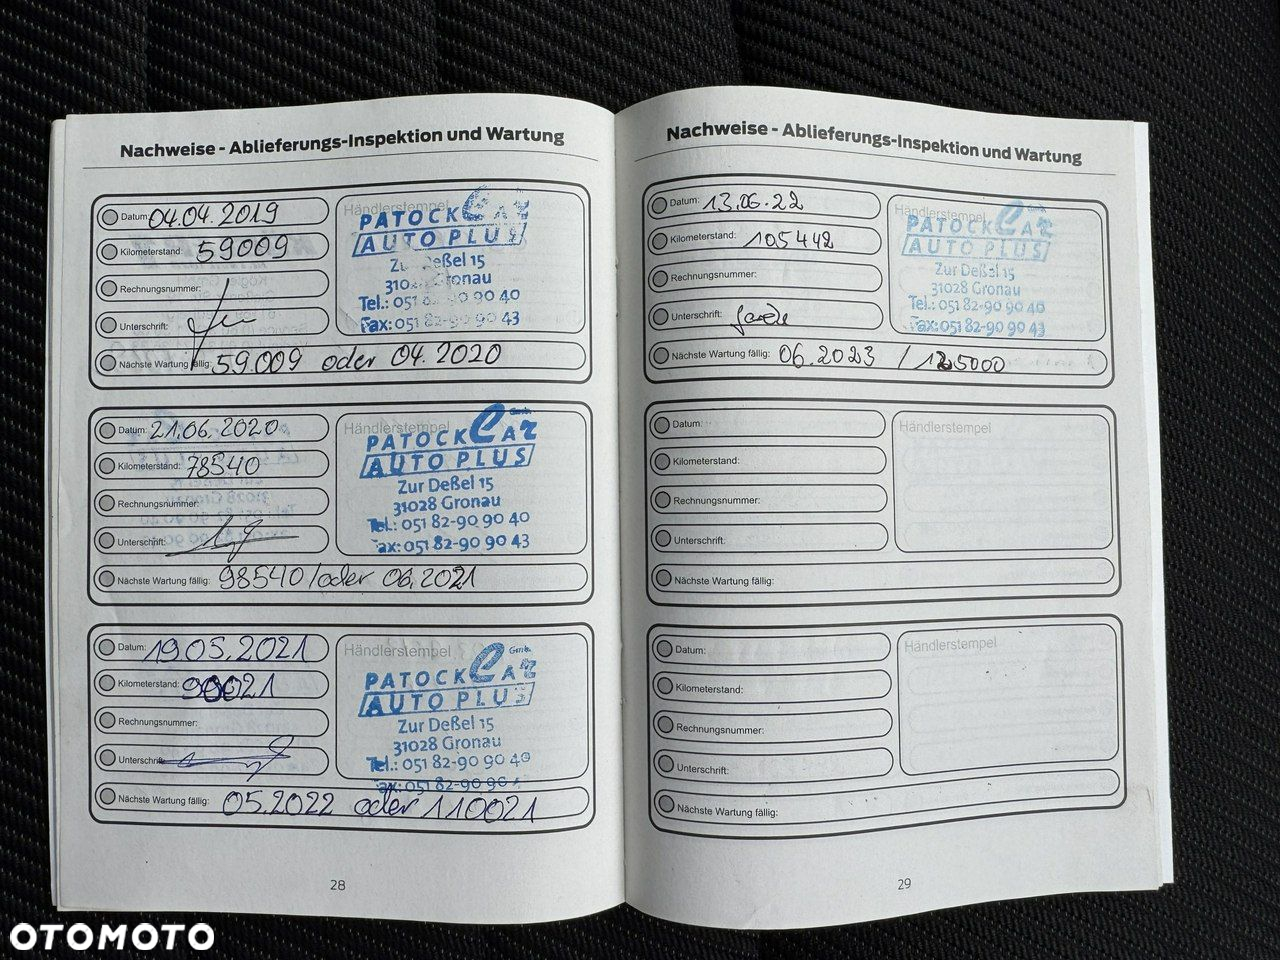 Nachweise - Ablieferungs-Inspektion und Wartung
Datum: 04.04.2019
Kilometerstand: 59009
Rechnungsnummer:
Unterschrift:
Nächste Wartung fällig: 59.009 oder 04.2020
Händlerstempel
PATOCK CAR
AUTO PLUS
Zur Deßel 15
31028 Gronau
Tel.: 051 82-90 90 40
Fax: 051 82-90 90 43
Datum: 21.06.2020
Kilometerstand: 78540
Rechnungsnummer:
Unterschrift:
Nächste Wartung fällig: 98540/oder 06.2021
Händlerstempel
PATOCK CAR GmbH
AUTO PLUS
Zur Deßel 15
31028 Gronau
Tel.: 051 82-90 90 40
Fax: 051 82-90 90 43
Datum: 19.05.2021
Kilometerstand: 90021
Rechnungsnummer:
Unterschrift:
Nächste Wartung fällig: 05.2022 oder 110021
Händlerstempel
PATOCK CAR GmbH
AUTO PLUS
Zur Deßel 15
31028 Gronau
Tel.: 051 82-90 90 40
Fax: 051 82-90 90 4
28
Nachweise - Ablieferungs-Inspektion und Wartung
Datum: 13.06.22
Kilometerstand: 105442
Rechnungsnummer:
Unterschrift:
Nächste Wartung fällig: 06.2023 / 125000
Händlerstempel
PATOCK CAR
AUTO PLUS
Zur Deßel 15
31028 Gronau
Tel.: 051 82-90 90 40
Fax: 051 82-90 90 43
Datum:
Kilometerstand:
Rechnungsnummer:
Unterschrift:
Nächste Wartung fällig:
Händlerstempel
Datum:
Kilometerstand:
Rechnungsnummer:
Unterschrift:
Nächste Wartung fällig:
Händlerstempel
29
OTOMOTO